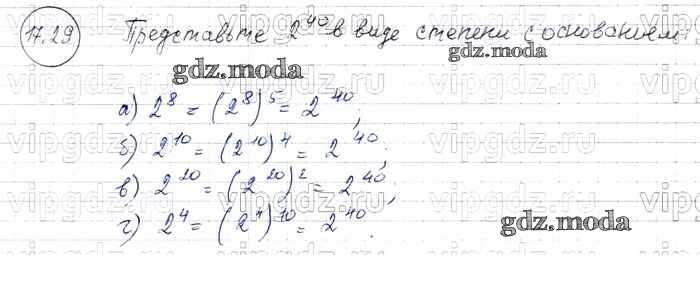 17.29 Представьте 2^40 в виде степени с основанием:
gdz.moda
gdz.moda
а) 2^8 = (2^8)^5 = 2^40;
б) 2^10 = (2^10)^4 = 2^40;
в) 2^20 = (2^20)^2 = 2^40;
г) 2^4 = (2^4)^10 = 2^40.
gdz.moda